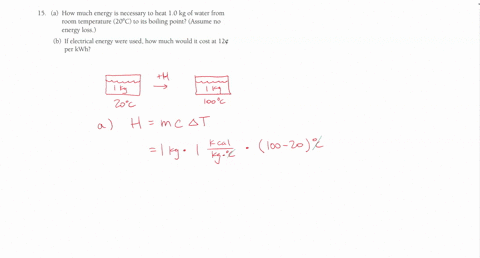 15. (a) How much energy is necessary to heat 1.0 kg of water from
room temperature (20°C) to its boiling point? (Assume no
energy loss.)
(b) If electrical energy were used, how much would it cost at 12¢
per kWh?
+H
1 kg → 1 kg
20°C 100°C
a) H = mc ΔT
= 1 kg • 1 kcal/kg•°C • (100-20)°C